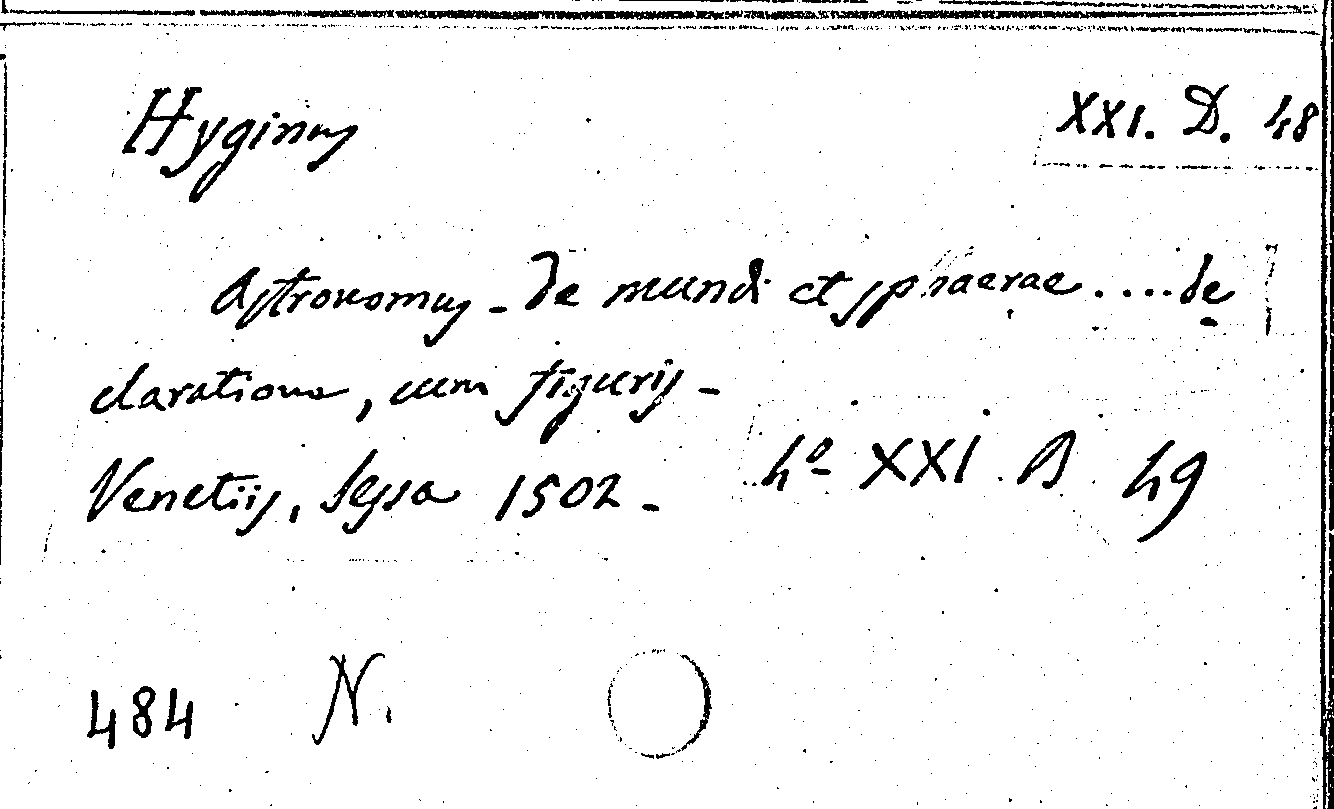 Hyginus XXI. D. 48
Astronomus - De mundi et sphaerae .... de
claratione, cum figuris -
Venetiis, Sessa 1502 - 4º XXI 49
484 N.